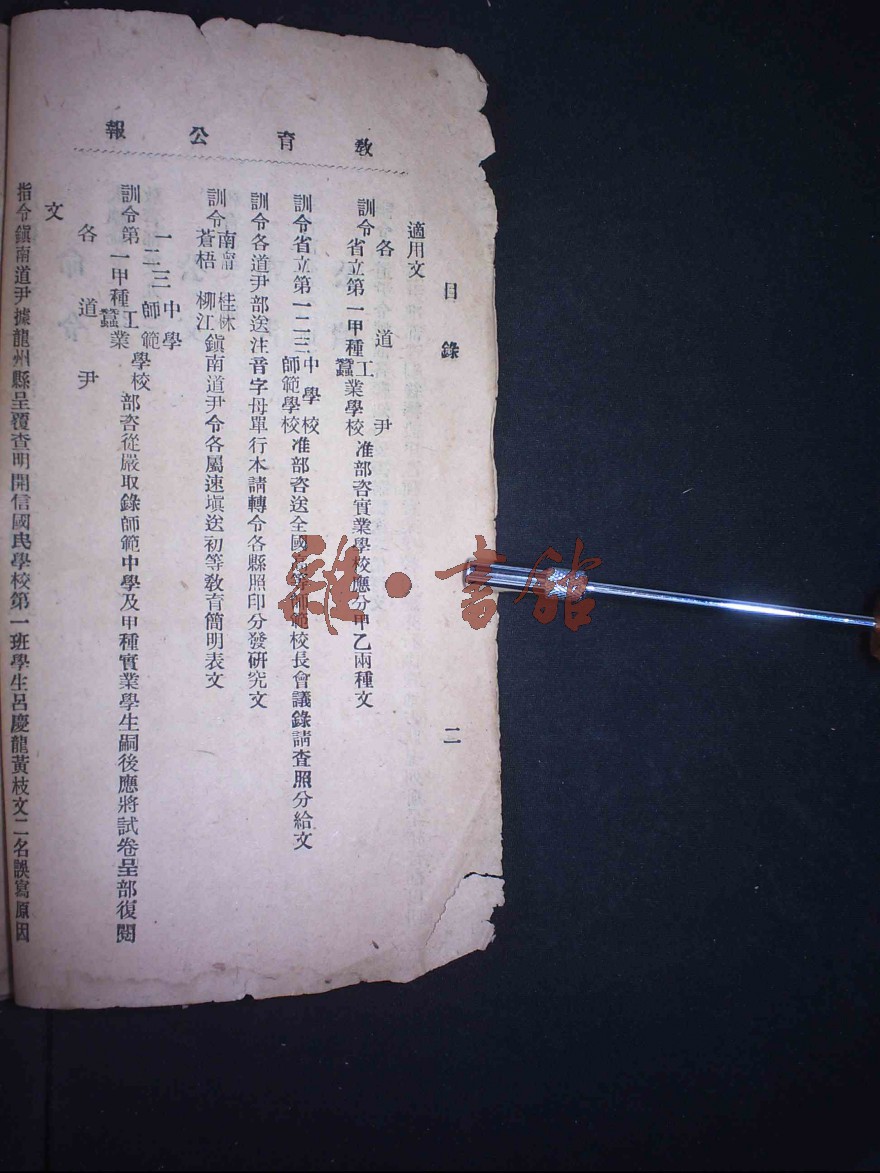 教育公報
目錄 二
適用文
訓令各道尹省立第一甲種工蠶業學校准部咨實業學校應分甲乙兩種文
訓令省立第一二三中學校師範學校准部咨送全國高等師範校長會議錄請查照分給文
訓令各道尹部送注音字母單行本請轉令各縣照印分發研究文
訓令南甯桂林蒼梧柳江鎭南道尹令各屬速塡送初等敎育簡明表文
訓令第一二三中學師範一甲種工蠶業學校各道尹部咨從嚴取錄師範中學及甲種實業學生嗣後應將試卷呈部復閱
文
指令鎭南道尹據龍州縣呈覆查明開信國民學校第一班學生呂慶龍黃枝文二名誤寫原因
雜·書館